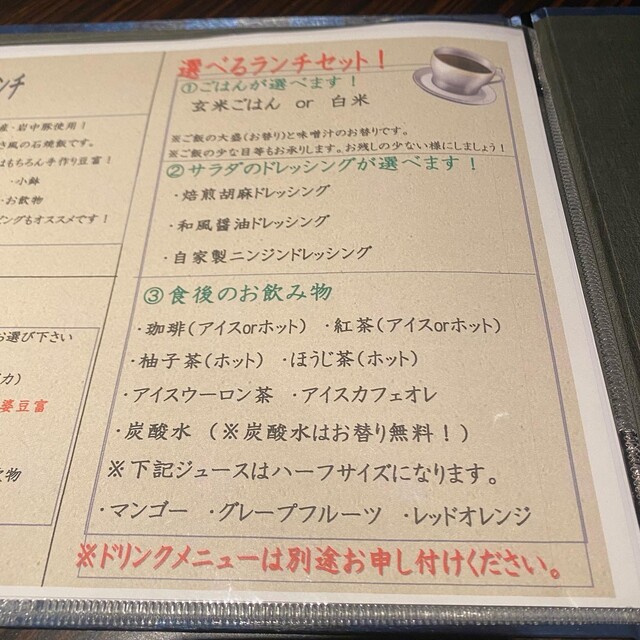 ンチ
産・岩中豚使用！
き風の石焼飯です。
はもちろん手作り豆富！
・小鉢
・お飲物
ピングもオススメです！
お選び下さい
カ）
婆豆富
飲物
選べるランチセット！
①ごはんが選べます！
玄米ごはん or 白米
※ご飯の大盛（お替り）と味噌汁のお替りです。
※ご飯の少な目等もお承りします。お残しの少ない様にしましょう！
②サラダのドレッシングが選べます！
・焙煎胡麻ドレッシング
・和風醤油ドレッシング
・自家製ニンジンドレッシング
③食後のお飲み物
・珈琲（アイスorホット） ・紅茶（アイスorホット）
・柚子茶（ホット） ・ほうじ茶（ホット）
・アイスウーロン茶 ・アイスカフェオレ
・炭酸水 （※炭酸水はお替り無料！）
※下記ジュースはハーフサイズになります。
・マンゴー ・グレープフルーツ ・レッドオレンジ
※ドリンクメニューは別途お申し付けください。